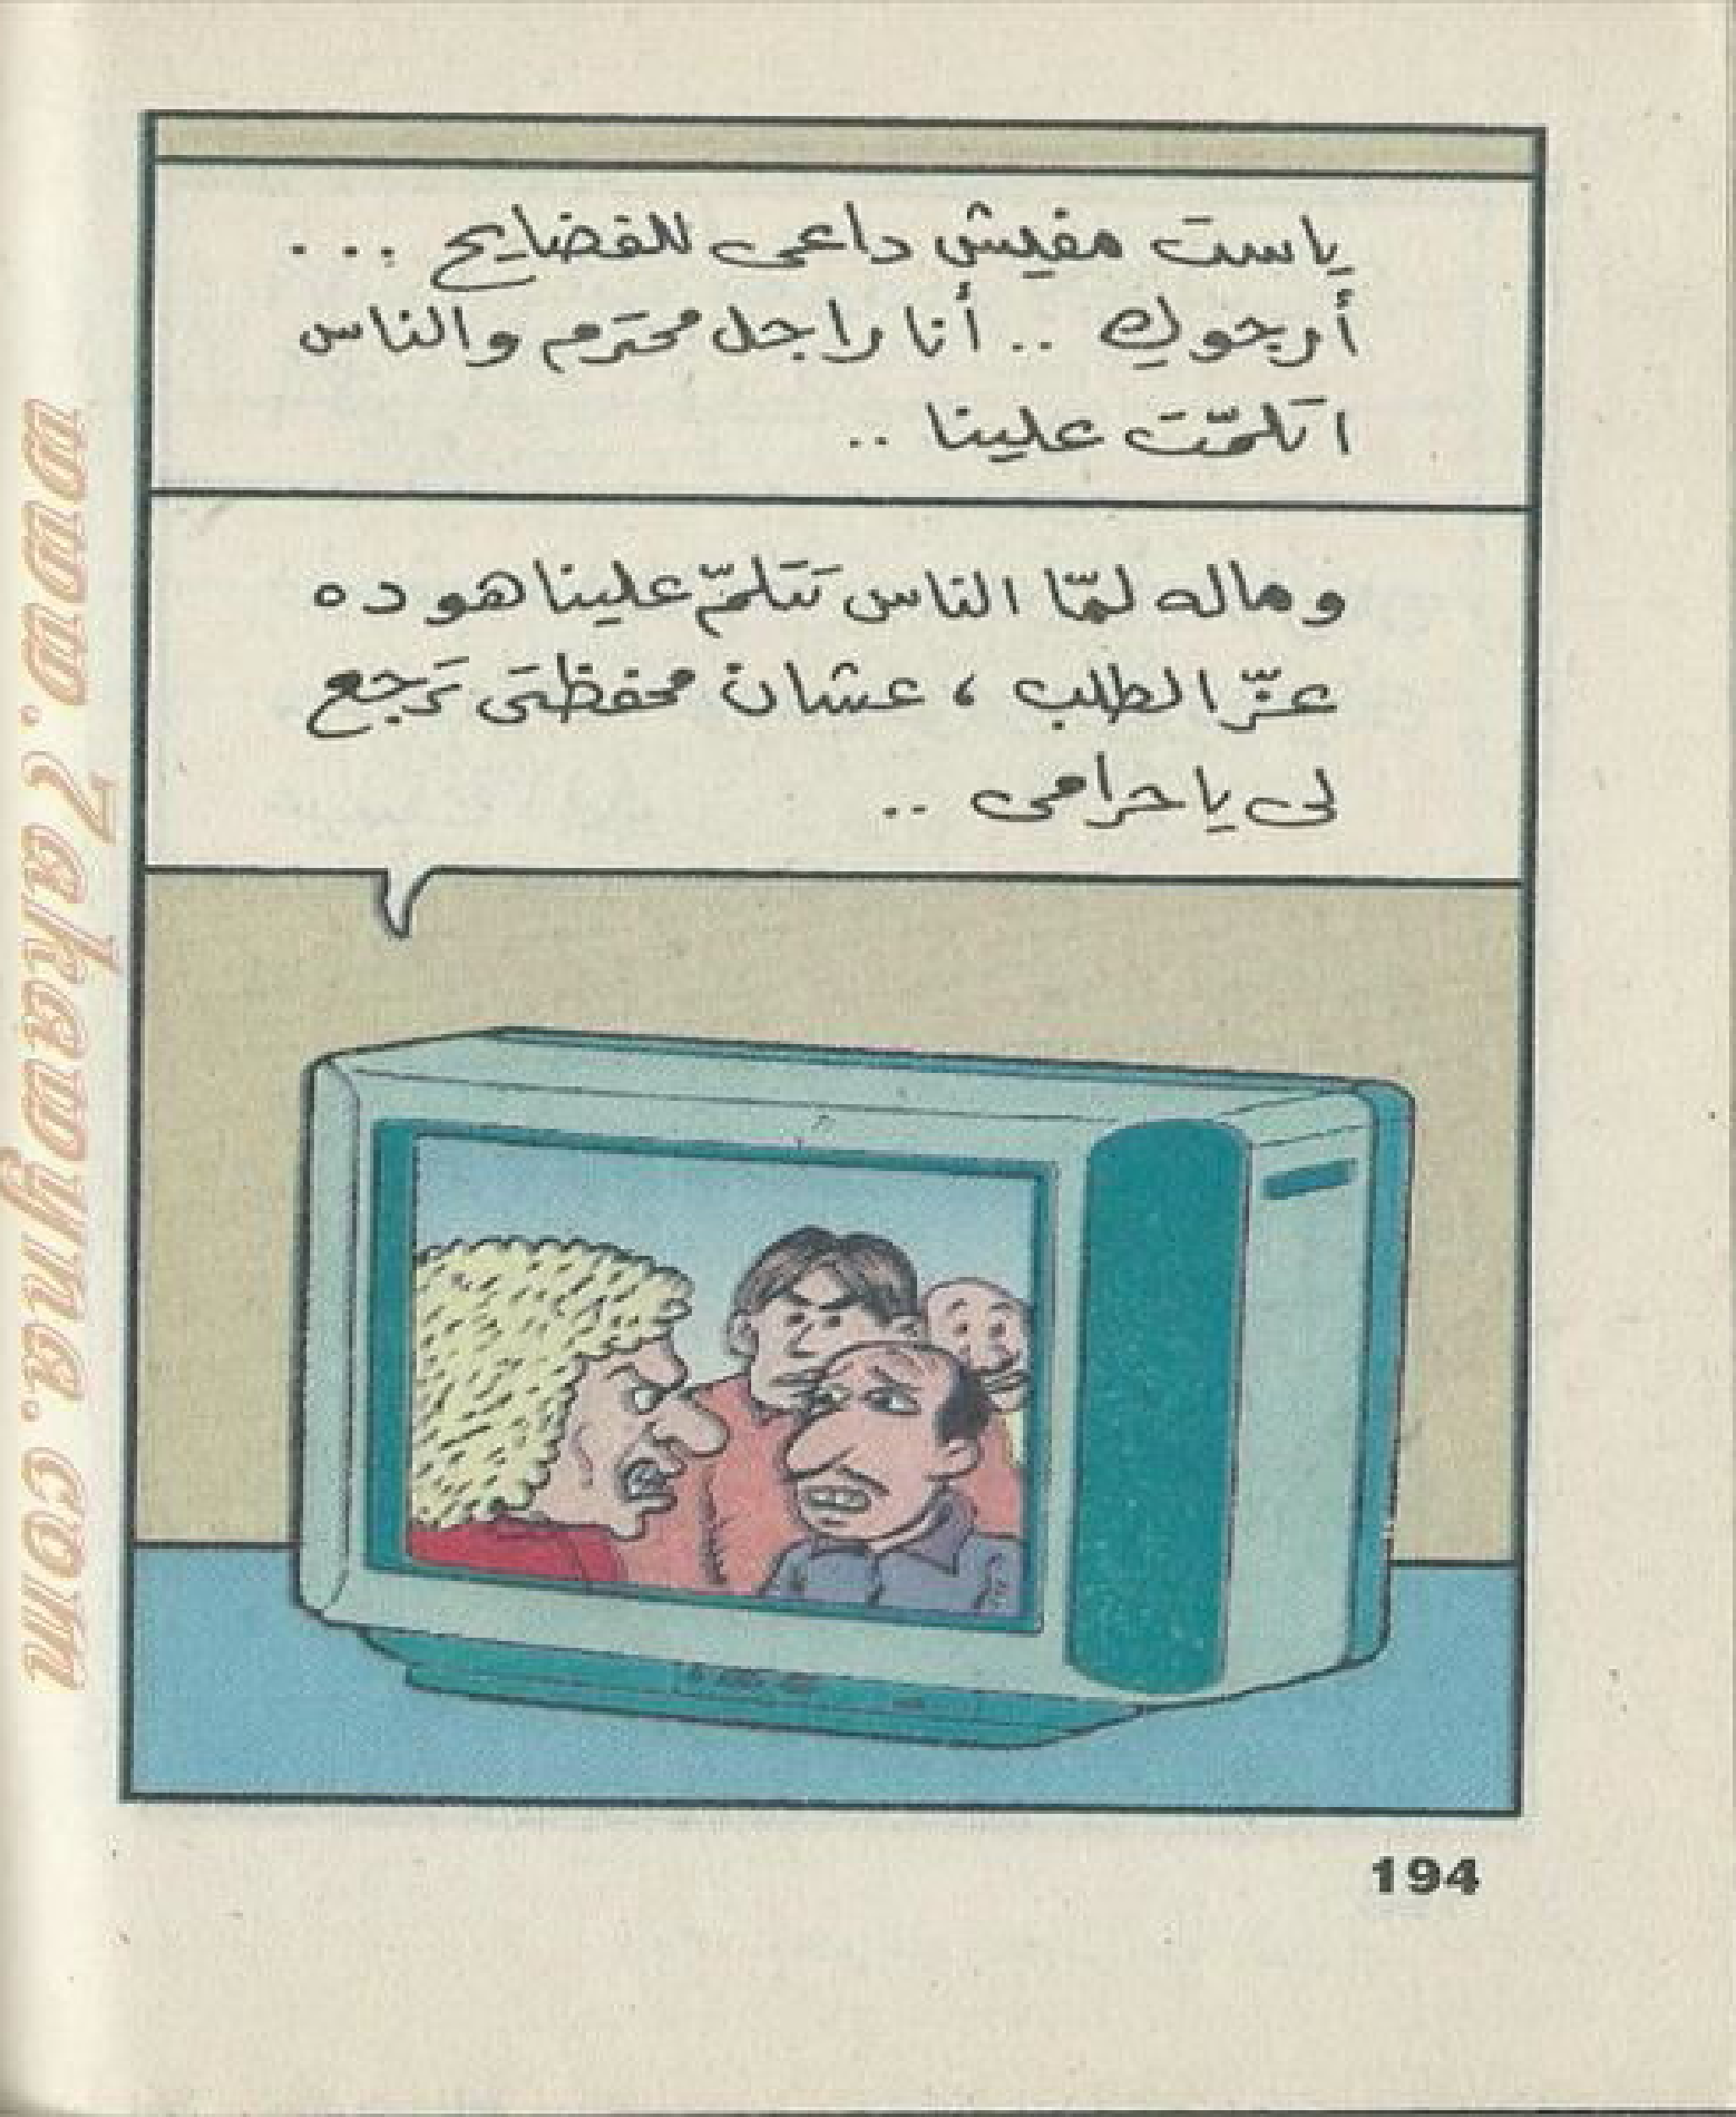 ياست مفيش داعى للفضايح ...
أرجوكِ .. أنا راجل محترم والناس
اتلمّت علينا ..
وماله لمّا الناس تتلمّ علينا هو ده
عزّ الطلب ، عشان محفظتى ترجع
لى يا حرامى ..
194
www.7akawyna.com